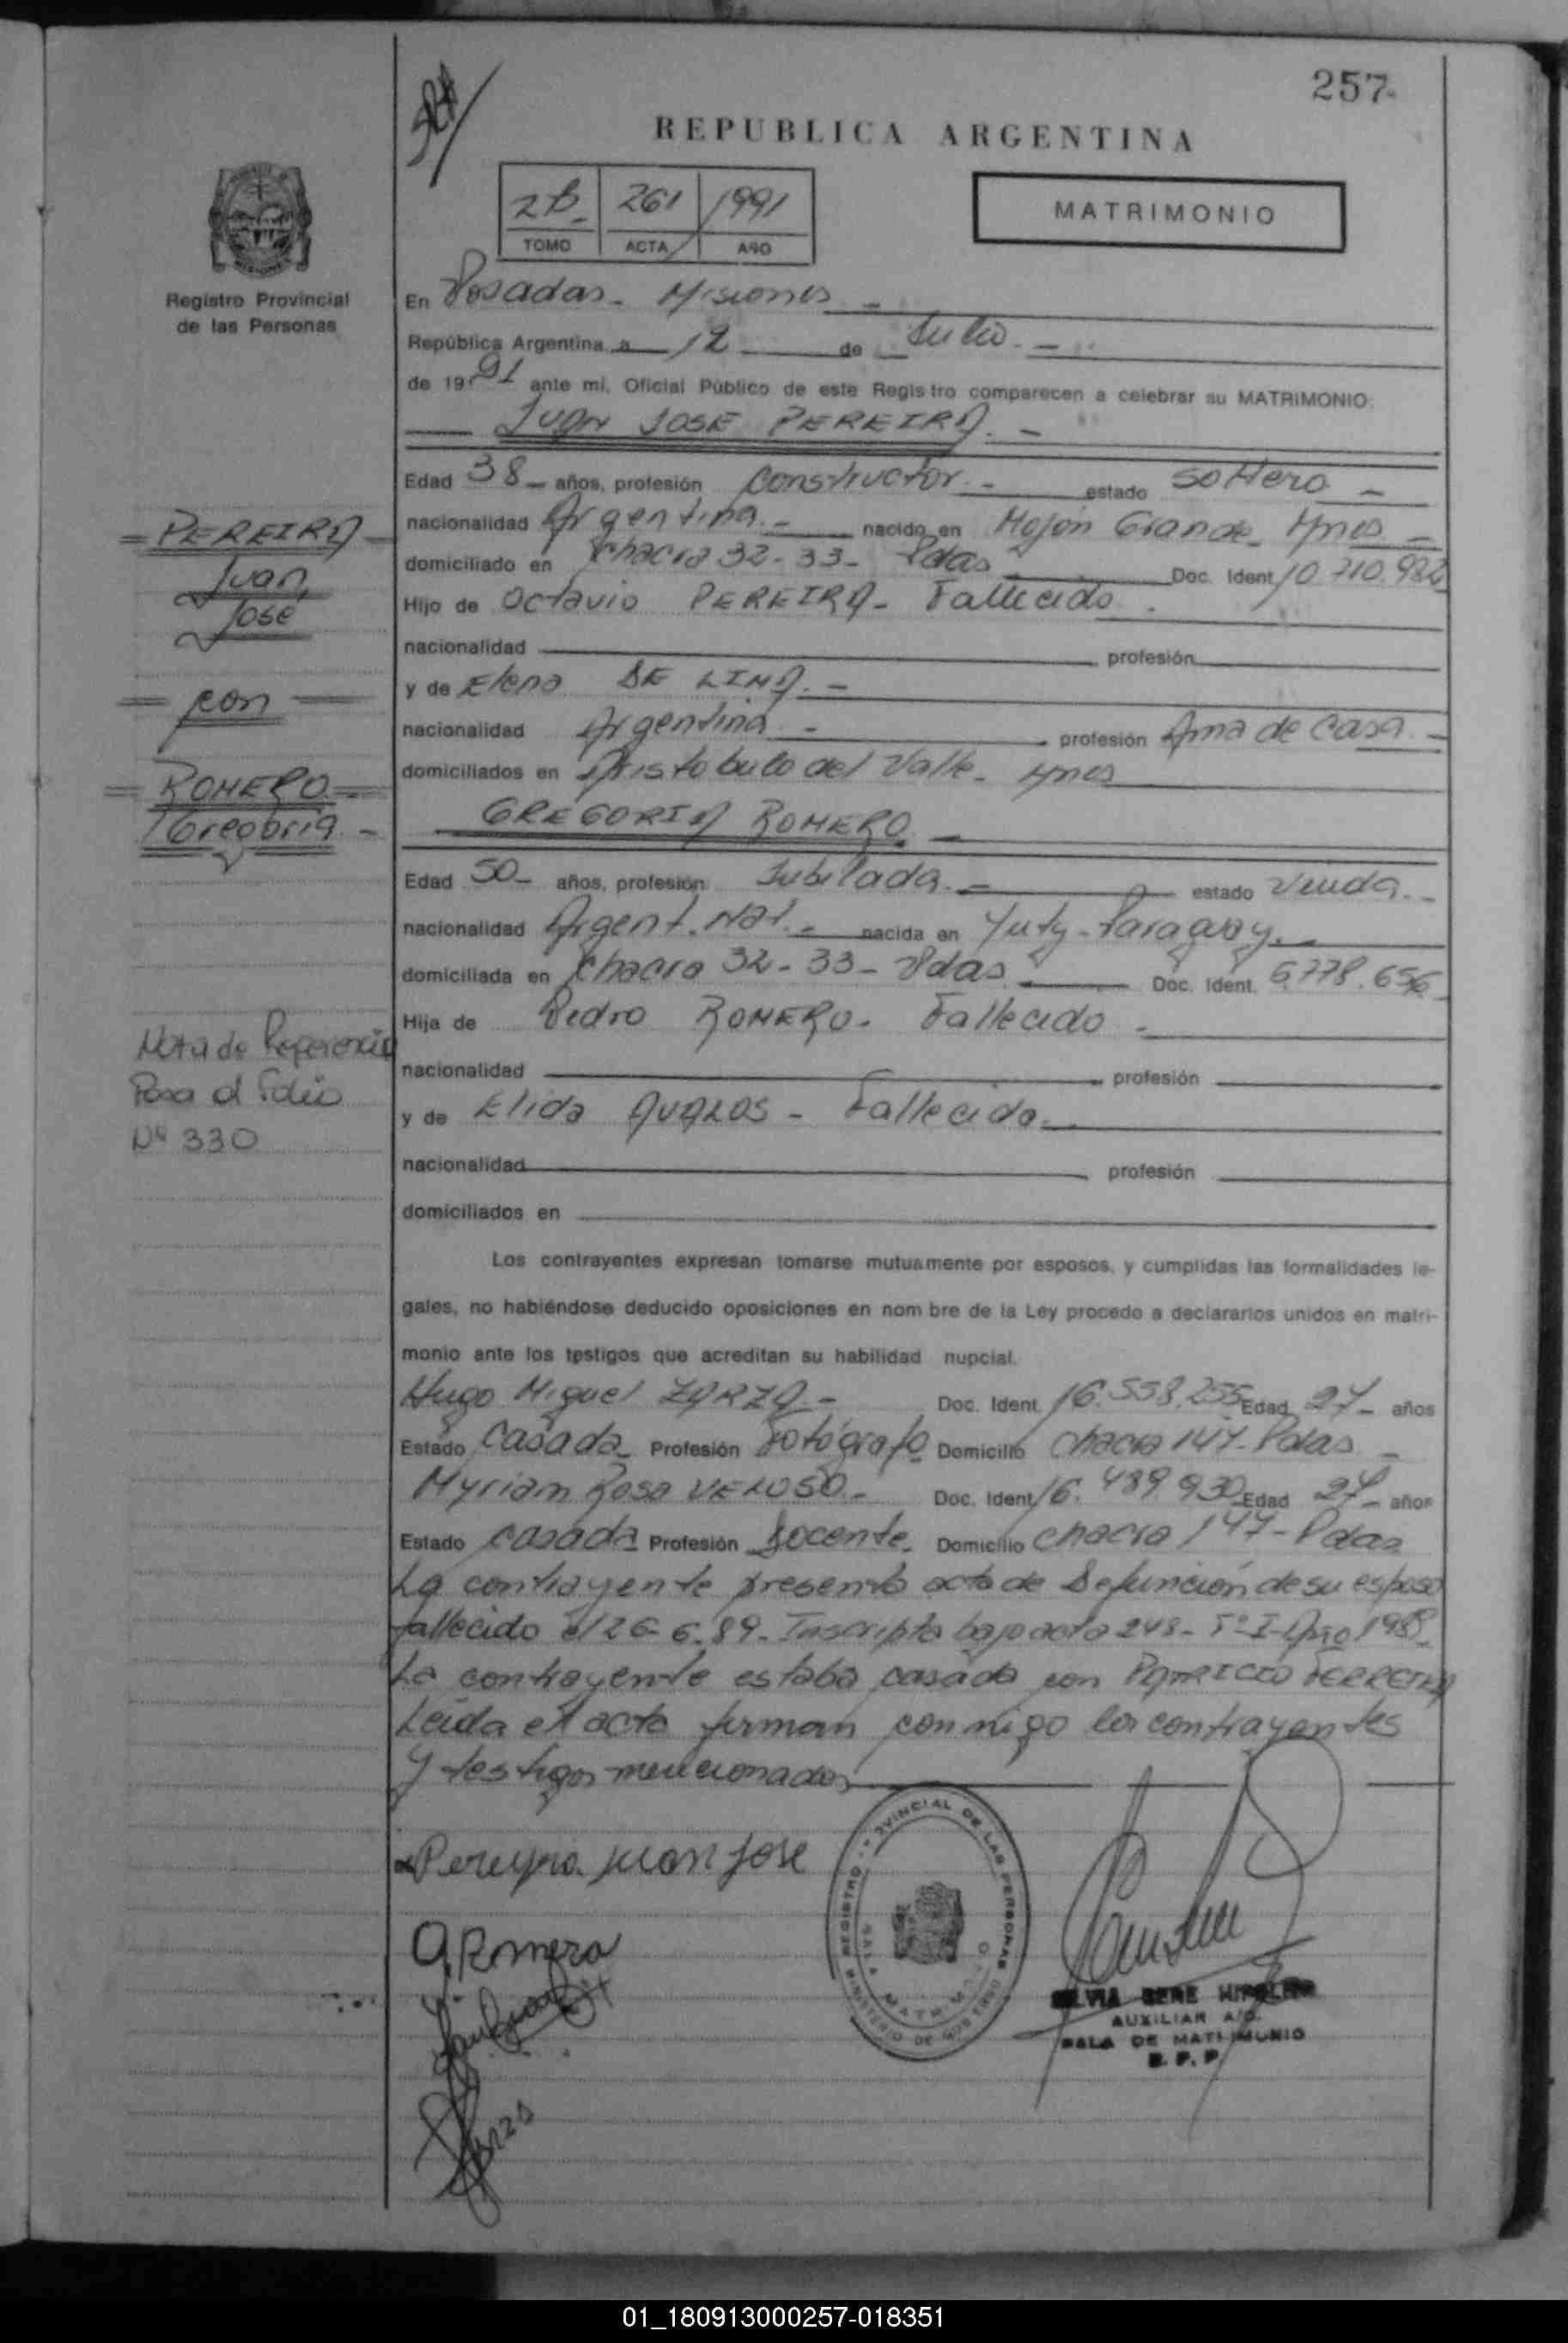 257
REPUBLICA ARGENTINA
2B 261 1991
TOMO ACTA AÑO
MATRIMONIO
Registro Provincial
de las Personas
En Posadas - Misiones -
República Argentina a 12 de Julio -
de 1991 ante mí, Oficial Público de este Registro comparecen a celebrar su MATRIMONIO:
JUAN JOSE PEREIRA -
Edad 38 - años, profesión Constructor - estado Soltero -
nacionalidad Argentina - nacido en Mojón Grande - Mnes -
domiciliado en Chacra 32-33 - Pdas Doc. Ident. 10.710.982
Hijo de Octavio PEREIRA - Fallecido.
nacionalidad profesión
y de Elena DE LIMA. -
nacionalidad Argentina - profesión Ama de Casa. -
domiciliados en Aristobulo del Valle - Mnes
GREGORIA ROMERO -
Edad 50 - años, profesión Jubilada. - estado Viuda. -
nacionalidad Argent. Nat. - nacida en Yuty - Paraguay. -
domiciliada en Chacra 32-33 - Pdas Doc. Ident. 6.778.656
Hija de Pedro ROMERO. Fallecido -
nacionalidad profesión
y de Elida AVALOS - Fallecida.
nacionalidad profesión
domiciliados en
Los contrayentes expresan tomarse mutuamente por esposos, y cumplidas las formalidades le-
gales, no habiéndose deducido oposiciones en nom bre de la Ley procedo a declararlos unidos en matri-
monio ante los testigos que acreditan su habilidad nupcial.
Hugo Miguel ZARZA - Doc. Ident. 16.558.255 Edad 27 - años
Estado Casada Profesión Fotógrafo Domicilio Chacra 147 - Pdas -
Myriam Rosa VELOSO - Doc. Ident. 16.489.930 Edad 27 - años
Estado casada Profesión Docente. Domicilio chacra 147 - Pdas
La contrayente presentó acta de Defunción de su esposo
fallecido el 26-6-89 - Inscripta bajo acta 248 - Tº I - Año
La contrayente estaba casada con PATRICIO FERREIRA
Leída el acta firman conmigo los contrayentes
y testigos mencionados
PEREIRA
Juan
José
con
ROMERO
Gregoria -
Nota de Referencia
Pasa al Folio
Nº 330
Pereyra Juan Jose
G. Romero
REGISTRO PROVINCIAL DE LAS PERSONAS
SALA MATRIMONIO
MINISTERIO DE GOBIERNO
AUXILIAR A/C.
SALA DE MATRIMONIO
R. P. P.
01_180913000257-018351